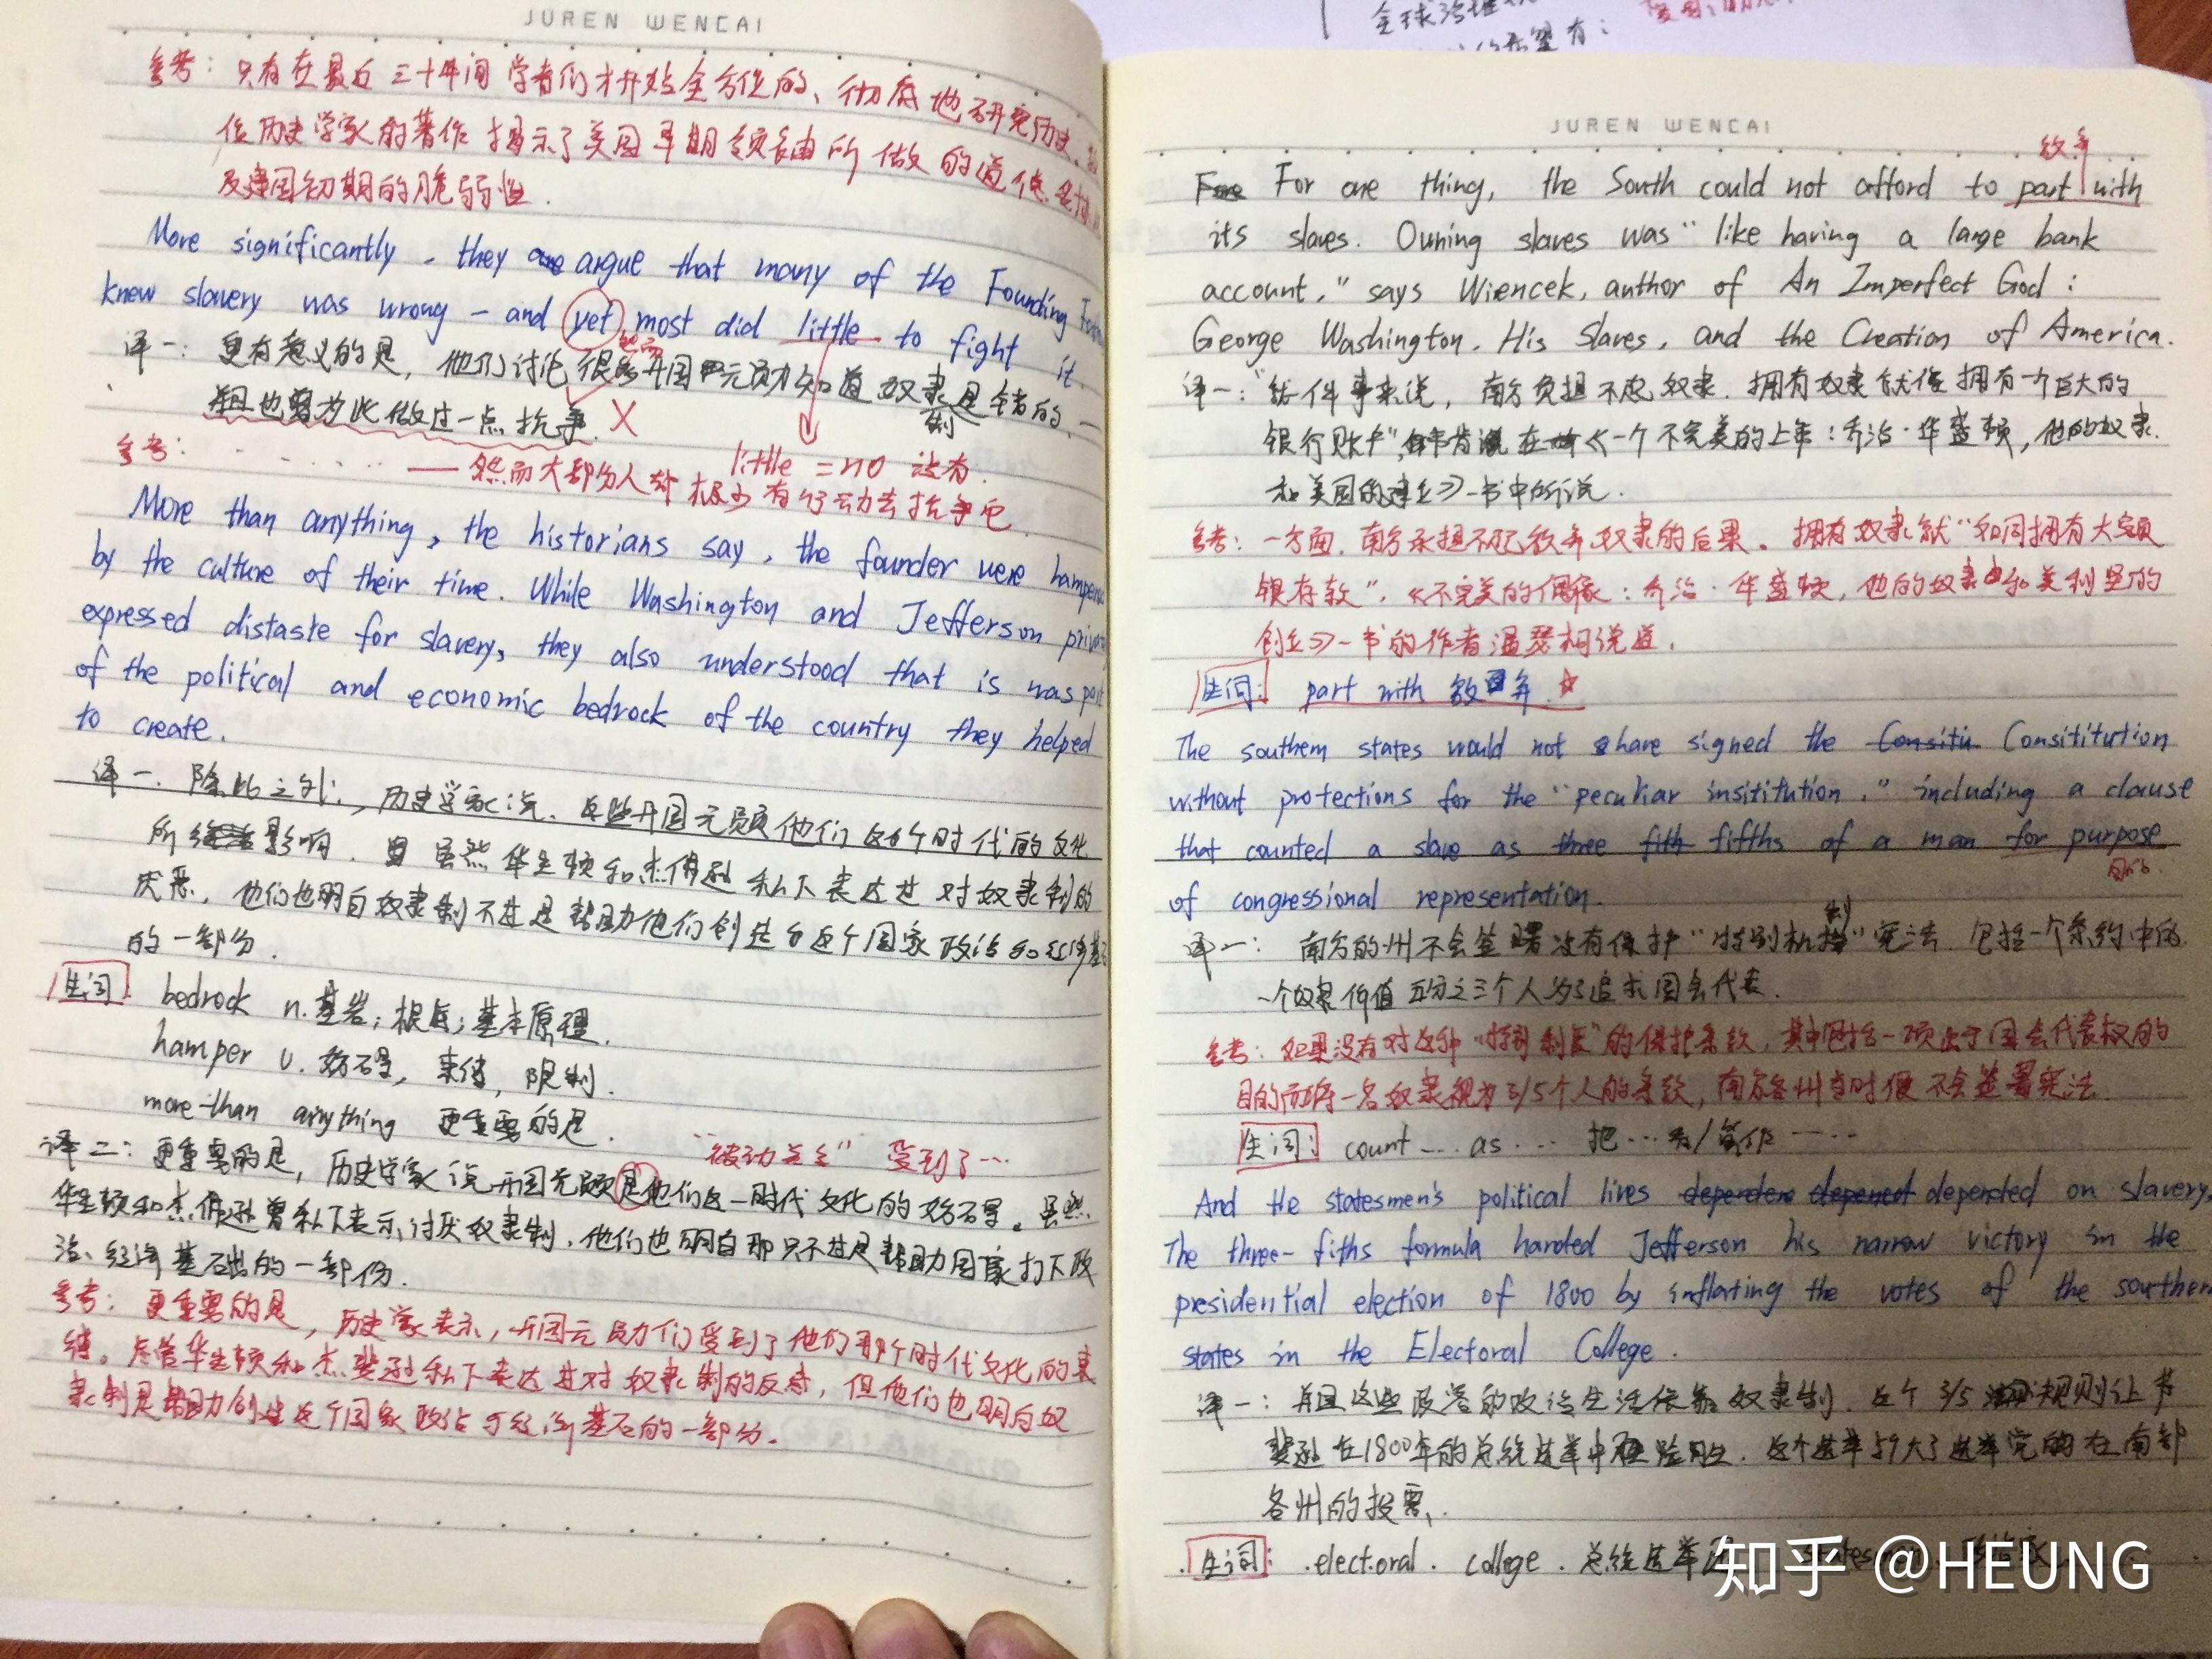 JUREN WENCAI
参考：只有在最近三十年间学者们才开始全方位的、彻底地研究历史。
位历史学家的著作揭示了美国早期领袖由所做的道德
及建国初期的脆弱性.
More significantly, they argue that many of the Founding
knew slavery was wrong – and yet most did little to fight it.
然而
译一：更有意义的是，他们讨论很多开国元勋知道奴隶是错的,一
制
且也曾为此做过一点抗争. X
little = no 没有
参考： ——然而大部分人却极少有行动去抗争它
More than anything, the historians say, the founder were
by the culture of their time. While Washington and Jefferson
expressed distaste for slavery, they also understood that is was
of the political and economic bedrock of the country they helped
to create.
译一. 除此之外, 历史学家说. 这些开国元勋他们这个时代的文化
所 影响. 虽然华生顿和杰佛逊私下表达过对奴隶制的
厌恶, 他们也明白奴隶制不过是帮助他们创造的这个国家政治和经济基
的一部分.
生词 bedrock n.基岩；根底；基本原理.
hamper v. 妨碍, 束缚, 限制.
more than anything 更重要的是.
“被动关系” 受到了…
译二：更重要的是, 历史学家说开国元勋是他们这一时代文化的妨碍。虽然
华生顿和杰佛逊曾私下表示讨厌奴隶制, 他们也明白那只不过是帮助国家打下政
治、经济基础的一部份.
参考：更重要的是, 历史学家表示, 开国元勋们受到了他们那个时代文化的束
缚。尽管华生顿和杰斐逊私下表达过对奴隶制的反感, 但他们也明白奴
隶制是帮助创建这个国家政治与经济基石的一部分.
全球治理
JUREN WENCAI
放弃
For one thing, the South could not afford to part with
its slaves. Owning slaves was “like having a large bank
account,” says Wiencek, author of An Imperfect God:
George Washington, His Slaves, and the Creation of America.
译一：“就件事来说, 南方负担不起奴隶. 拥有奴隶就像拥有一个巨大的
银行账户”, 在《一个不完美的上帝：乔治·华盛顿, 他的奴隶.
和美国的建立》一书中所说.
参考：一方面, 南方承担不起放弃奴隶的后果。拥有奴隶就“如同拥有大额
银存款”. 《不完美的偶像：乔治·华盛顿, 他的奴隶和美利坚的
创立》一书的作者温瑟相说道.
生词: part with 放弃.
The southern states would not have signed the Consititution
without protections for the “peculiar insititution,” including a clause
that counted a slave as three fifths of a man for purpose
目的.
of congressional representation.
制
译一： 南方的州不会签署没有保护“特别机制”宪法. 包括一个条约中的
一个奴隶价值五分之三个人为了追求国会代表.
参考：如果没有对这种“特别制度”的保护条款, 其中包括一项出于国会代表权的
目的而将一名奴隶视为3/5个人的条款, 南方各州当时便不会签署宪法.
生词: count … as … 把…看/算作……
And the statesmen's political lives depended on slavery.
The three-fiths formula handed Jefferson his narrow victory in the
presidential election of 1800 by inflating the votes of the southern
states in the Electoral College.
译一：并且这些政客的政治生活依靠奴隶制. 这个3/5规则让杰
斐逊在1800年的总统选举中险胜. 这个选举扩大了选举院的在南部
各州的投票.
生词: .electoral. college. 总统选举团
知乎 @HEUNG